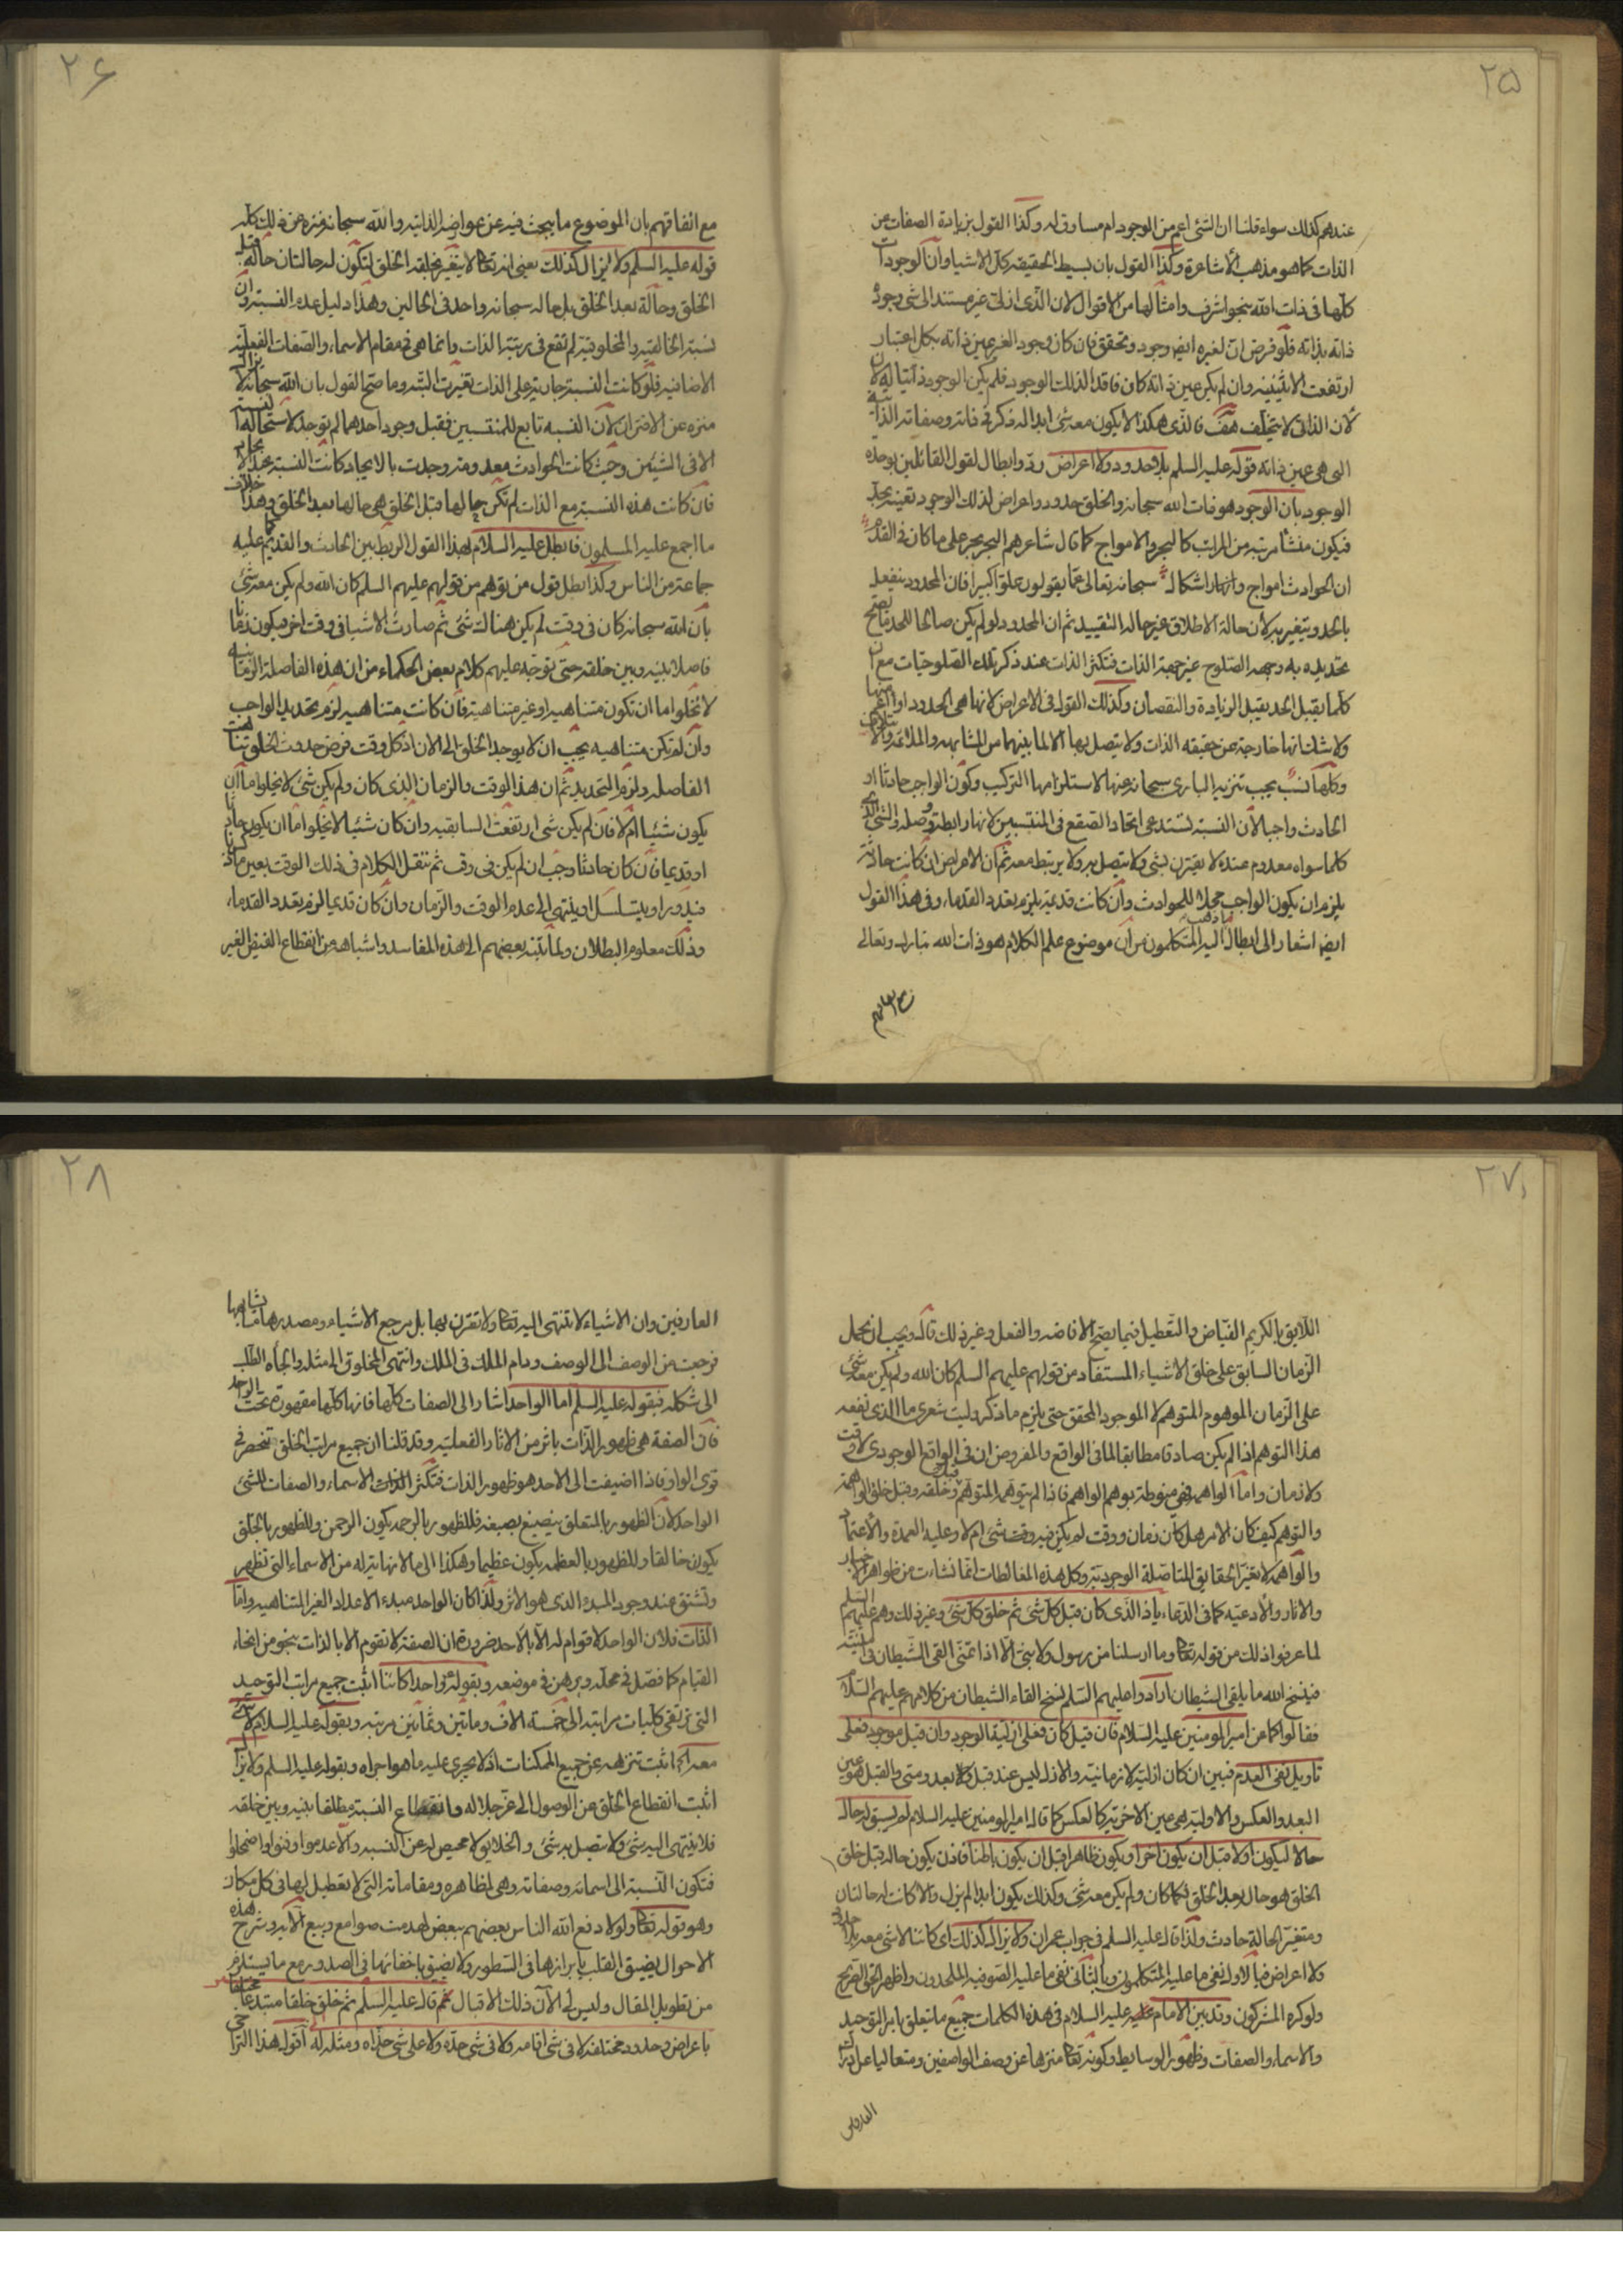 ٢٥
عندهم كذلك سواء قلنا ان الشئ اعم من الوجود ام مساوق له وكذا القول بزيادة الصفات عن
الذات كما هو مذهب الأشاعرة وكذا القول بان بسيط الحقيقة كل الاشياء وان الوجودات
كلها فى ذات الله بنحو اشرف وامثالها من الاقوال لان الذى ازلى غير مستند الى شئ وجوده
ذاته بذاته فلو فرض ان لغيره ايض وجود وتحقق فان كان وجود الغير عين ذاته بكل اعتبار
ارتفعت الاثنينية وان لم يكن عين ذاته كان فاقدا لذلك الوجود فلم يكن الوجود ذاتيا له لان
لان الذاتى لا يتخلف هف فالذى هكذا لا يكون معه شئ ابدا له ذكر فى ذاته وصفاته الذاتية
التى هى عين ذاته قوله عليه السلم بلا حدود ولا اعراض رد وابطال لقول القائلين بوحدة
الوجود بان الوجود هو ذات الله سبحانه والخلق حدود واعراض لذلك الوجود تعينه بحد
فيكون منشأ مرتبة من المراتب كالبحر والامواج كما قال شاعرهم البحر بحر على ما كان فى القدم
ان الحوادث امواج وانهار اشكال سبحانه تعالى عما يقولون علوا كبيرا فان المحدود ينفعل
بالحد ويتغير به لان حالة الاطلاق غير حالة التقييد ثم ان المحدود لو لم يكن صالحا للحد ما يصح
تحديده به وجهة الصلوح غير جهة الذات فتكثر الذات عند ذكر تلك الصلوحيات مع ان
كلما يقبل الحد يقبل الزيادة والنقصان وكذلك القول فى الاعراض لانها هى الحدود او اعم منها
ولا شك انها خارجة عن حقيقة الذات ولا يتصل بها الا لما بينهما من المشابهة والملائمة والائتلاف
وكلها نسب يجب تنزيه البارى سبحانه عنها لاستلزامها التركيب وكون الواجب حادثا او
الحادث واجبا لان النسبة تستدعى اتحاد الصقع فى المنتسبين لانها رابطة وصلة والشئ الذى
كلما سواه معدوم عنده لا يقترن بشئ ولا يتصل به ولا يرتبط معه ثم ان الاعراض ان كانت حادثة
يلزم ان يكون الواجب محلا للحوادث وان كانت قديمة يلزم تعدد القدماء وفى هذا القول
ايضا اشعار الى ابطال ما ذهب اليه المتكلمون من ان موضوع علم الكلام هو ذات الله تبارك وتعالى
مع اتفاقهم
٢۶
مع اتفاقهم بان الموضوع ما يبحث فيه عن عوارضه الذاتية والله سبحانه منزه عن ذلك كله
قوله عليه السلم ولا يزال كذلك يعنى انه تعالى لا يتغير بخلقه الخلق لتكون له حالتان حالة قبل
الخلق وحالة بعد الخلق بل حاله سبحانه واحد فى الحالين وهذا دليل عدم النسبة وان
نسبة الخالقية والمخلوقية لم تقع فى رتبة الذات وانما هى فى مقام الاسماء والصفات الفعلية
الاضافية فلو كانت النسبة جارية على الذات تغيرت البتة وما صح القول بان الله سبحانه لا يزال
منزه عن الاقتران لان النسبة تابع للمنتسبين فقبل وجود احدهما لم توجد لاستحالة النسبة
الا فى الشيئين وحيث كانت الحوادث معدومة وجدت بالايجاد كانت النسبة
فان كانت هذه النسبة مع الذات لم تكن حالها قبل الخلق هى حالها بعد الخلق وهذا خلاف
ما اجمع عليه المسلمون فابطل عليه السلام بهذا القول الربط بين الحادث والقديم كما عليه
جماعة من الناس وكذا بطل قول من توهم من قولهم عليهم السلم كان الله ولم يكن معه شئ
بان الله سبحانه كان فى وقت لم يكن هناك شئ ثم صارت الاشياء فى وقت اخر فيكون زمانا
فاصلا بينه وبين خلقه حتى توجه عليهم كلام بعض الحكماء من ان هذه الفاصلة الزمانية
لا تخلو اما ان تكون متناهية او غير متناهية فان كانت متناهية لزم تحديد الواجب
وان لم تكن متناهية يجب ان لا يوجد الخلق الى الان اذ كل وقت فرض حدوث الخلق تناهت
الفاصلة ولزم التحديد ثم ان هذا الوقت والزمان الذى كان ولم يكن شئ لا يخلو اما ان
يكون شيئا ام لا فان لم يكن شئ ارتفعت السابقية وان كان شيئا لا يخلو اما ان يكون حادثا
او قديما فان كان حادثا وجب ان لم يكن فى وقت ثم ننقل الكلام فى ذلك الوقت بعين ما ذكرنا
فيدور او يتسلسل او ينتهى الى عدم الوقت والزمان وان كان قديما لزم تعدد القدماء
وذلك معلوم البطلان ولما تنبه بعضهم الى هذه المفاسد واشباهها من انقطاع الفيض الغير
٢٧
اللايق بالكريم الفياض والتعطيل فيما يصح الافاضة والفعل وغير ذلك قال ويجب ان يحمل
الزمان السابق على خلق الاشياء المستفاد من قولهم عليهم السلم كان الله ولم يكن معه شئ
على الزمان الموهوم المتوهم لا الموجود المحقق حتى يلزم ما ذكر وليت شعرى ما الذى نفعه
هذا التوهم اذا لم يكن صادقا مطابقا لما فى الواقع والمفروض ان فى الواقع الوجودى لا وقت
ولا زمان واما الواهمة فهى منوطة بوهم الواهم فاذا لم يتوهمه المتوهم قبل خلقه وقبل خلق الواهمة
والتوهم كيف كان الامر هل كان زمان ووقت لم يكن فيه وقت شئ ام لا وعليه العمدة والاعتماد
والواهمة لا تغير الحقايق المتاصلة الوجودية وكل هذه المغالطات انما نشات من ظواهر الاخبار
والاثار والادعية كما فى الدعاء يا ذا الذى كان قبل كل شئ ثم خلق كل شئ وغير ذلك وهم عليهم السلم
لما عرفوا ذلك من قوله تعالى وما ارسلنا من رسول ولا نبى الا اذا تمنى القى الشيطان فى امنيته
فينسخ الله ما يلقى الشيطان ارادوا عليهم السلم نسخ القاء الشيطان من كلامهم عليهم السلام
فقالوا كما عن امير المومنين عليه السلام فان قيل كان فعلى ازلية الوجود وان قيل موجود فعلى
تاويل نفى العدم فبين ان كان ازلية لا زمانية والازل ليس عند قبل ولا بعد ومتى والقبل هو عين
البعد والعكس والاولية هى عين الاخرية كالعكس كما قال امير المومنين عليه السلام لم يسبق له حال
حالا ليكون اولا قبل ان يكون اخرا ويكون ظاهرا قبل ان يكون باطنا فاذن يكون حاله قبل خلق
الخلق هو حاله بعد الخلق فكما كان ولم يكن معه شئ وكذلك يكون ابدا لم يزل والا كانت له حالتان
ومتغير الحالة حادث ولذا قال عليه السلم فى جواب عمران ولا يزال كذلك اى كائنا لا شئ معه بلا حدود
ولا اعراض فبالاول نفى ما عليه المتكلمون وبالثانى نفى ما عليه الصوفية الملحدون واظهر الحق الصريح
ولو كره المشركون وقد بين الامام عليه السلام فى هذه الكلمات جميع ما يتعلق بامر التوحيد
والاسماء والصفات وظهور الوسايط وكونه تعالى منزها عن وصف الواصفين ومتعاليا عن ادراك
العارفين
٢٨
العارفين وان الاشياء لا تنتهى اليه تعالى ولا تقترن بها بل مرجع الاشياء ومصدرها
فرجعت من الوصف الى الوصف ودام الملك فى الملك وانتهى المخلوق الى مثله والجأه الطلب
الى شكله فبقوله عليه السلم اما الواحد اشار الى الصفات كلها فانها كلها مقهورة تحت الواحد
فان الصفة هى ظهور الذات باثر من الاثار الفعلية وقد قلنا ان جميع مراتب الخلق تنحصر فى
قوى الواو فاذا اضيفت الى الاحد هو ظهور الذات فتكثر الذات الاسماء والصفات للشئ
الواحد لان الظهور بالمتعلق ينصبغ بصبغه فللظهور بالرحمة يكون الرحمن وللظهور بالخلق
يكون خالقا وللظهور بالعظمة يكون عظيما وهكذا الى ما لا نهاية له من الاسماء التى تظهر
وتشتق عند وجود المبدء الذى هو الاثر ولذا كان الواحد مبدء الاعداد الغير المتناهية واما
الذات فلان الواحد لا قوام له الا بالاحد ضرورة ان الصفة لا تقوم الا بالذات بنحو من انحاء
القيام كما فصل فى محله وبرهن فى موضعه وبقوله فى واحدا كائنا اثبت جميع مراتب التوحيد
التى ترتقى كليات مراتبه الى خمسة الاف ومائتين وثمانين مرتبة وبقوله عليه السلام لا شئ
معه اثبت تنزهه عن جميع الممكنات اذ لا يجرى عليه ما هو اجراه وبقوله عليه السلم ولا يزال
اثبت انقطاع الخلق عن الوصول الى عز جلاله وانقطاع النسبة مطلقا بينه وبين خلقه
فلا ينتهى اليه شئ ولا يتصل به شئ والخلايق لا محيص لهم عن النسبة والا عدموا وفنوا واضمحلوا
فتكون النسبة الى اسمائه وصفاته وهى مظاهره ومقاماته التى لا تعطيل لها فى كل مكان
وهو قوله تعالى ولولا دفع الله الناس بعضهم ببعض لهدمت صوامع وبيع الاية وشرح هذه
الاحوال يضيق القلب بابرازها فى السطور ولا يضيق باخفائها فى الصدور مع ما يستلزم
من تطويل المقال وليس لى الآن ذلك الاقبال ثم قال عليه السلم ثم خلق خلقا مبتدعا مختلفا
باعراض وحدود مختلفة لا فى شئ اقامه ولا فى شئ حده ولا على شئ حذاه ومثله له اقول هذا